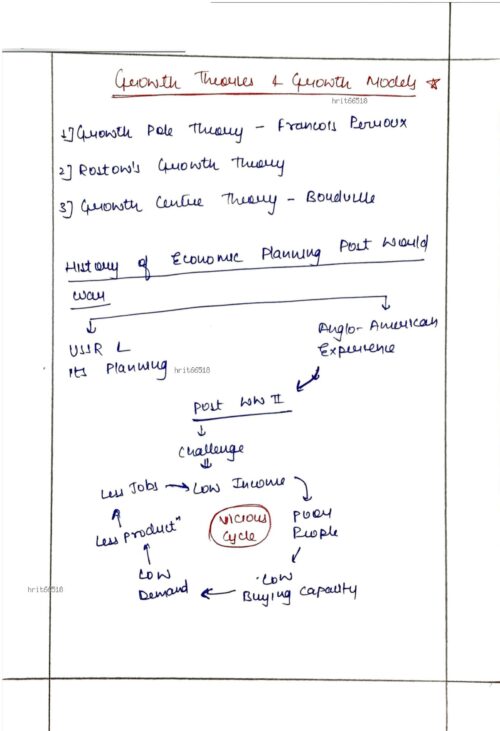 Growth Theories & Growth Models ★
hrit66518
1] Growth Pole Theory - Francois Perroux
2] Rostow's Growth Theory
3] Growth Centre Theory - Boudville
History of Economic Planning Post World
War
USSR &
Its Planning
hrit66518
Anglo-American
Experience
Post WW II
Challenge
Less Jobs → Low Income
Less Product"
Vicious
Cycle
Poor
People
Low
Demand
Low
Buying Capacity
hrit66518